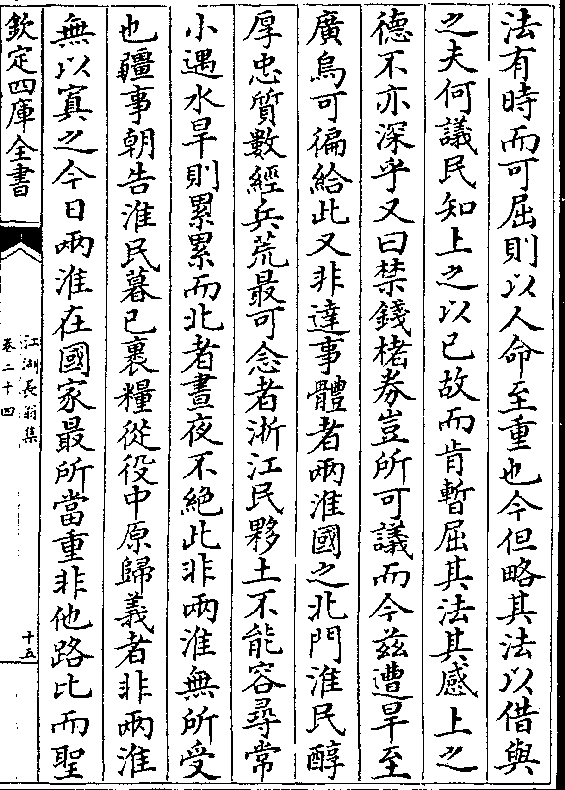 法有時而可屈則以人命至重也今但略其法以借與
之夫何議民知上之以已故而肯暫屈其法其感上之
德不亦深乎又曰禁錢楮券豈所可議而今兹遭旱至
廣烏可徧給此又非達事體者兩淮國之北門淮民醇
厚忠質數經兵荒最可念者浙江民夥土不能容尋常
小遇水旱則累累而北者晝夜不絶此非兩淮無所受
也疆事朝告淮民暮已裹糧從役中原歸義者非兩淮
無以寘之今日兩淮在國家最所當重非他路比而聖
欽定四庫全書
江湖長翁集
卷二十四
十五